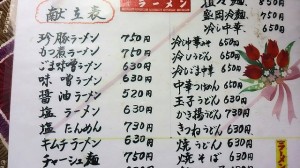 献立表
ラーメン
珍豚ラーメン 750円
かつ煮ラーメン 750円
ごま味噌ラーメン 630円
味噌ラーメン 630円
醤油ラーメン 520円
塩ラーメン 630円
塩たんめん 730円
キムチラーメン 630円
チャーシュー麺 750円
850円
盛岡冷麺
冷し中華
冷し中華
冷しうどん 650円
冷しごま中華
中華つけめん 650円
玉子うどん 630円
かき揚うどん 730円
きつねうどん 630円
焼うどん 630円
焼そば 630円
ラーメン